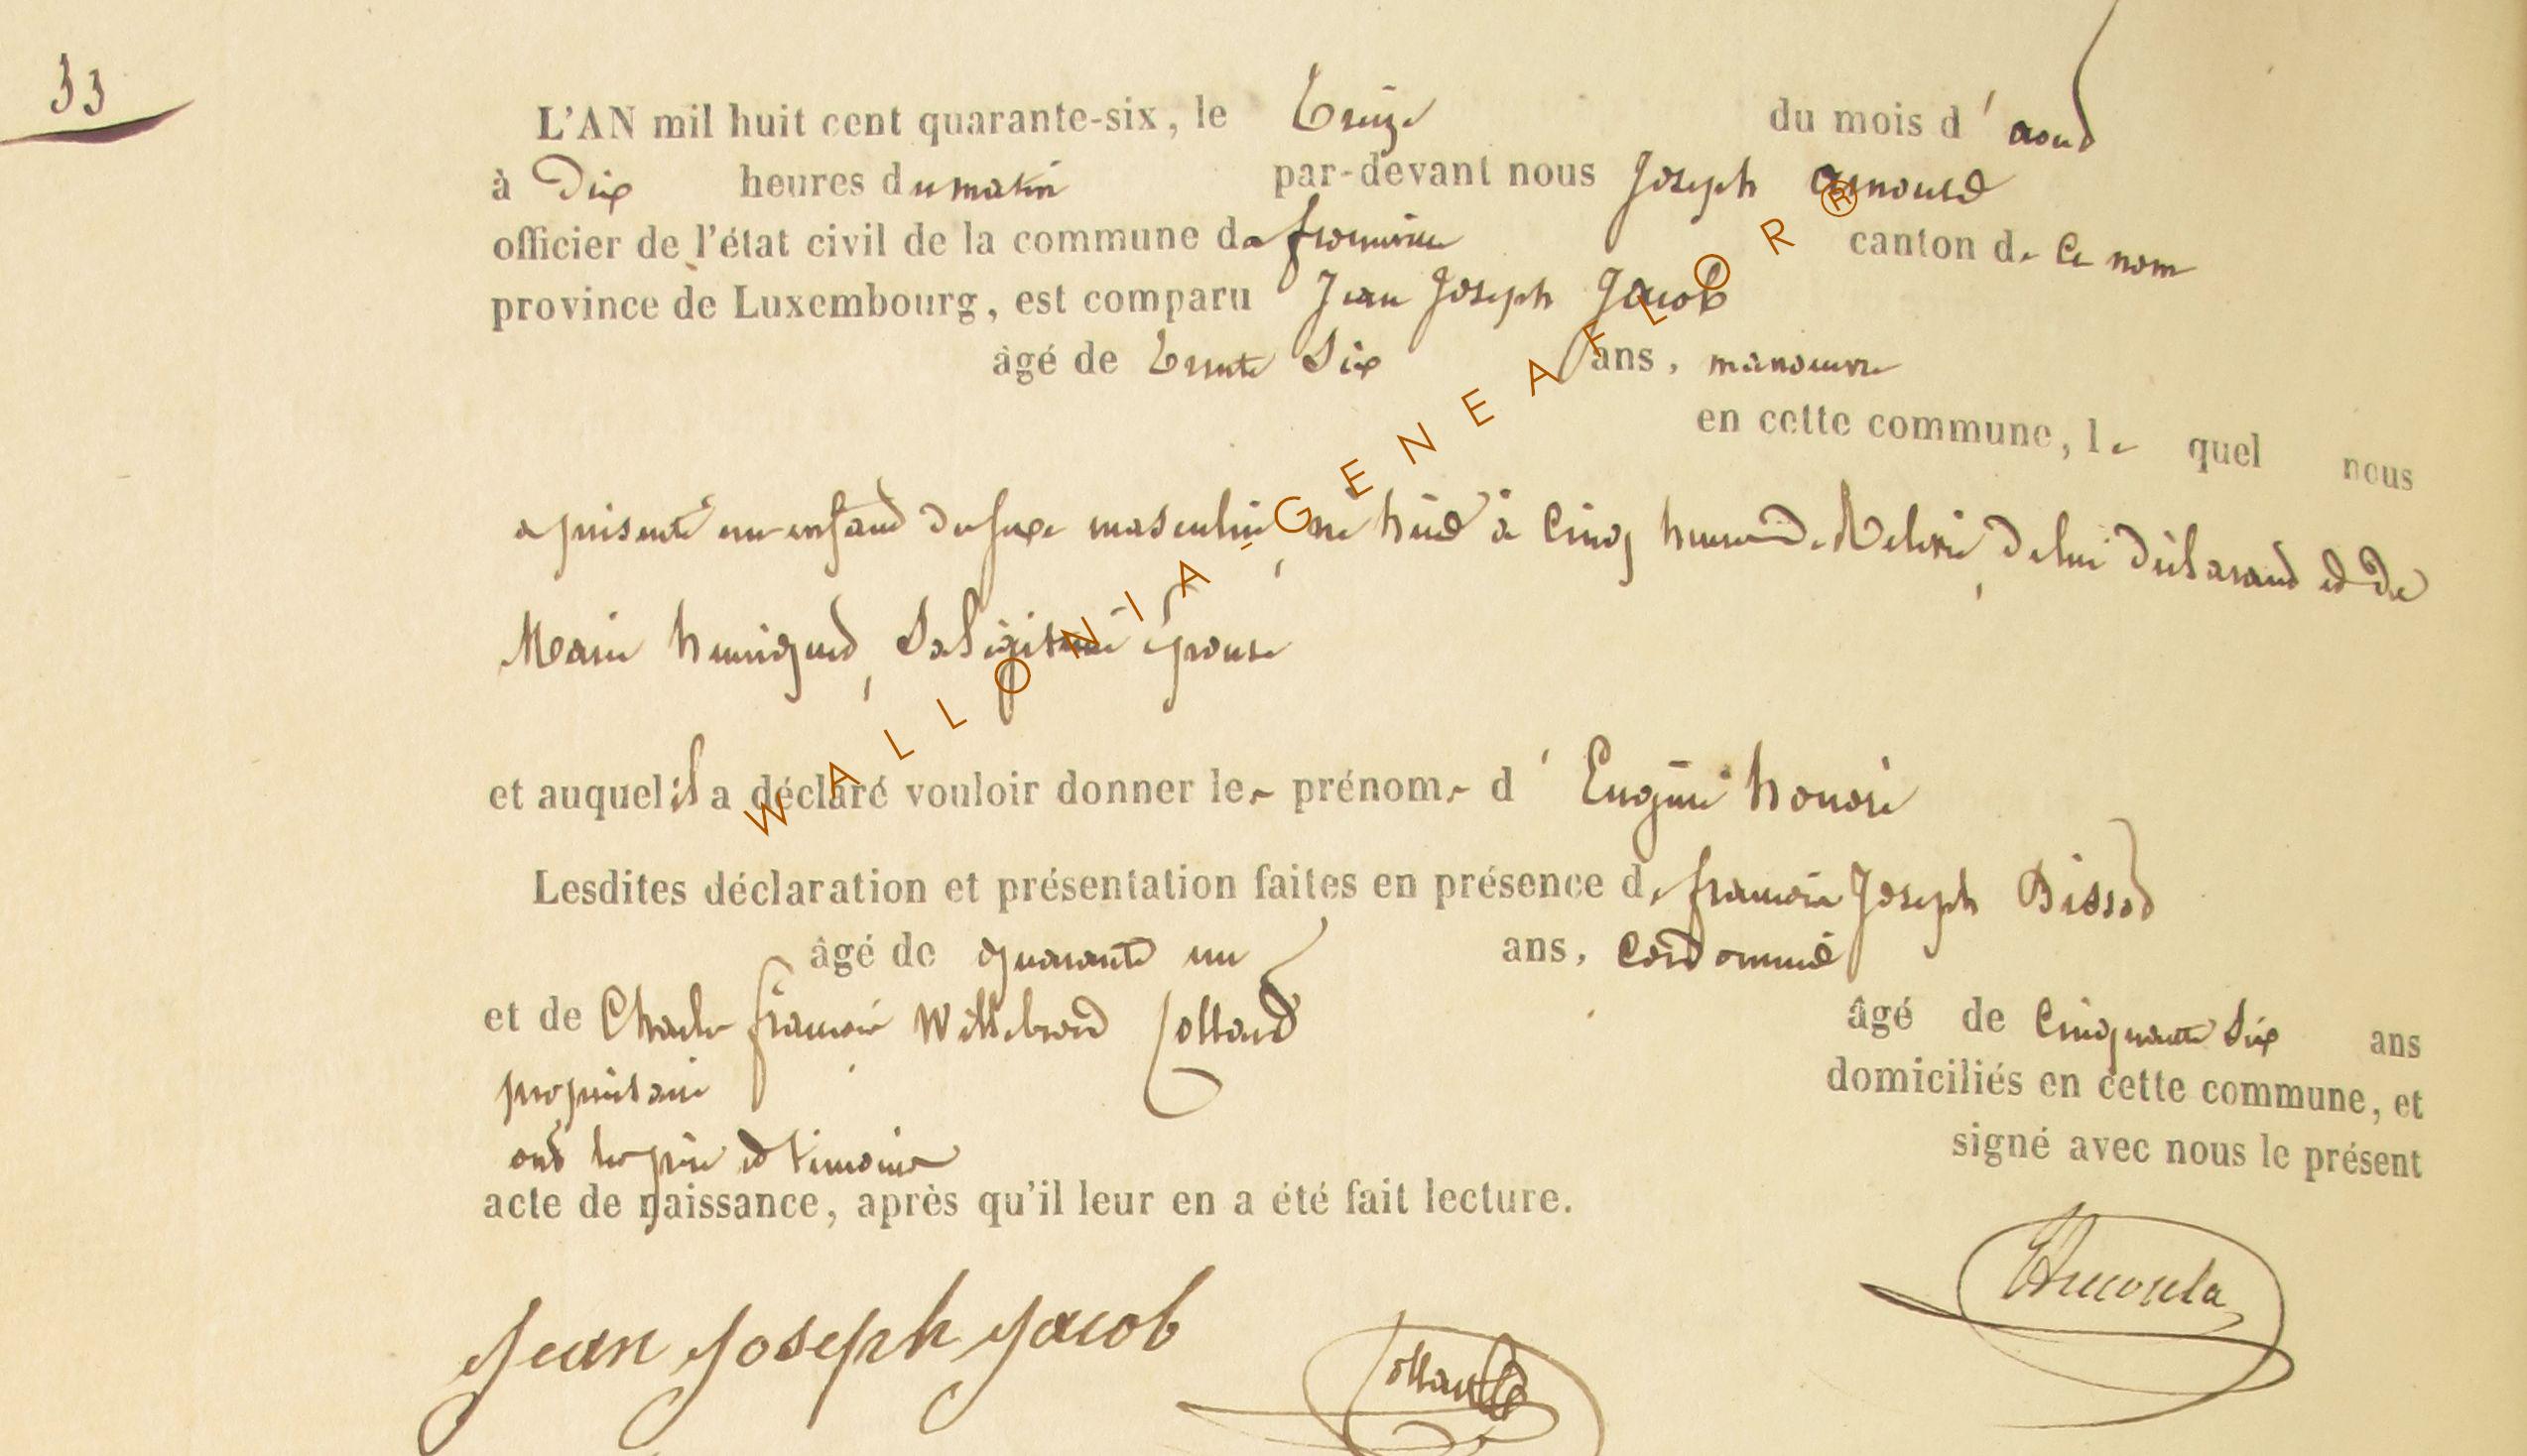 33
L'AN mil huit cent quarante-six, le Treize du mois d'aout
à Dix heures du matin par-devant nous Joseph Arnould
officier de l'état civil de la commune de canton de ce nom
province de Luxembourg, est comparu Jean Joseph Jacob
âgé de trente Six ans, manoeuvre
en cette commune, le quel nous
a présenté un enfant du sexe masculin né hier à Cinq heures de Relevé, de lui déclarant et de
Marie henriquet, Sa légitime épouse
et auquel il a déclaré vouloir donner les prénoms d'Eugène honoré
Lesdites déclaration et présentation faites en présence de françois Joseph Bissot
âgé de quarante un ans, Cordonnié
et de Charles françois Willebrord Collard âgé de Cinquante Six ans
propriétaire domiciliés en cette commune, et
ont les père et témoins signé avec nous le présent
acte de naissance, après qu'il leur en a été fait lecture.
Jean Joseph Jacob
Collard
WALLONIA-GENEAFLOR®